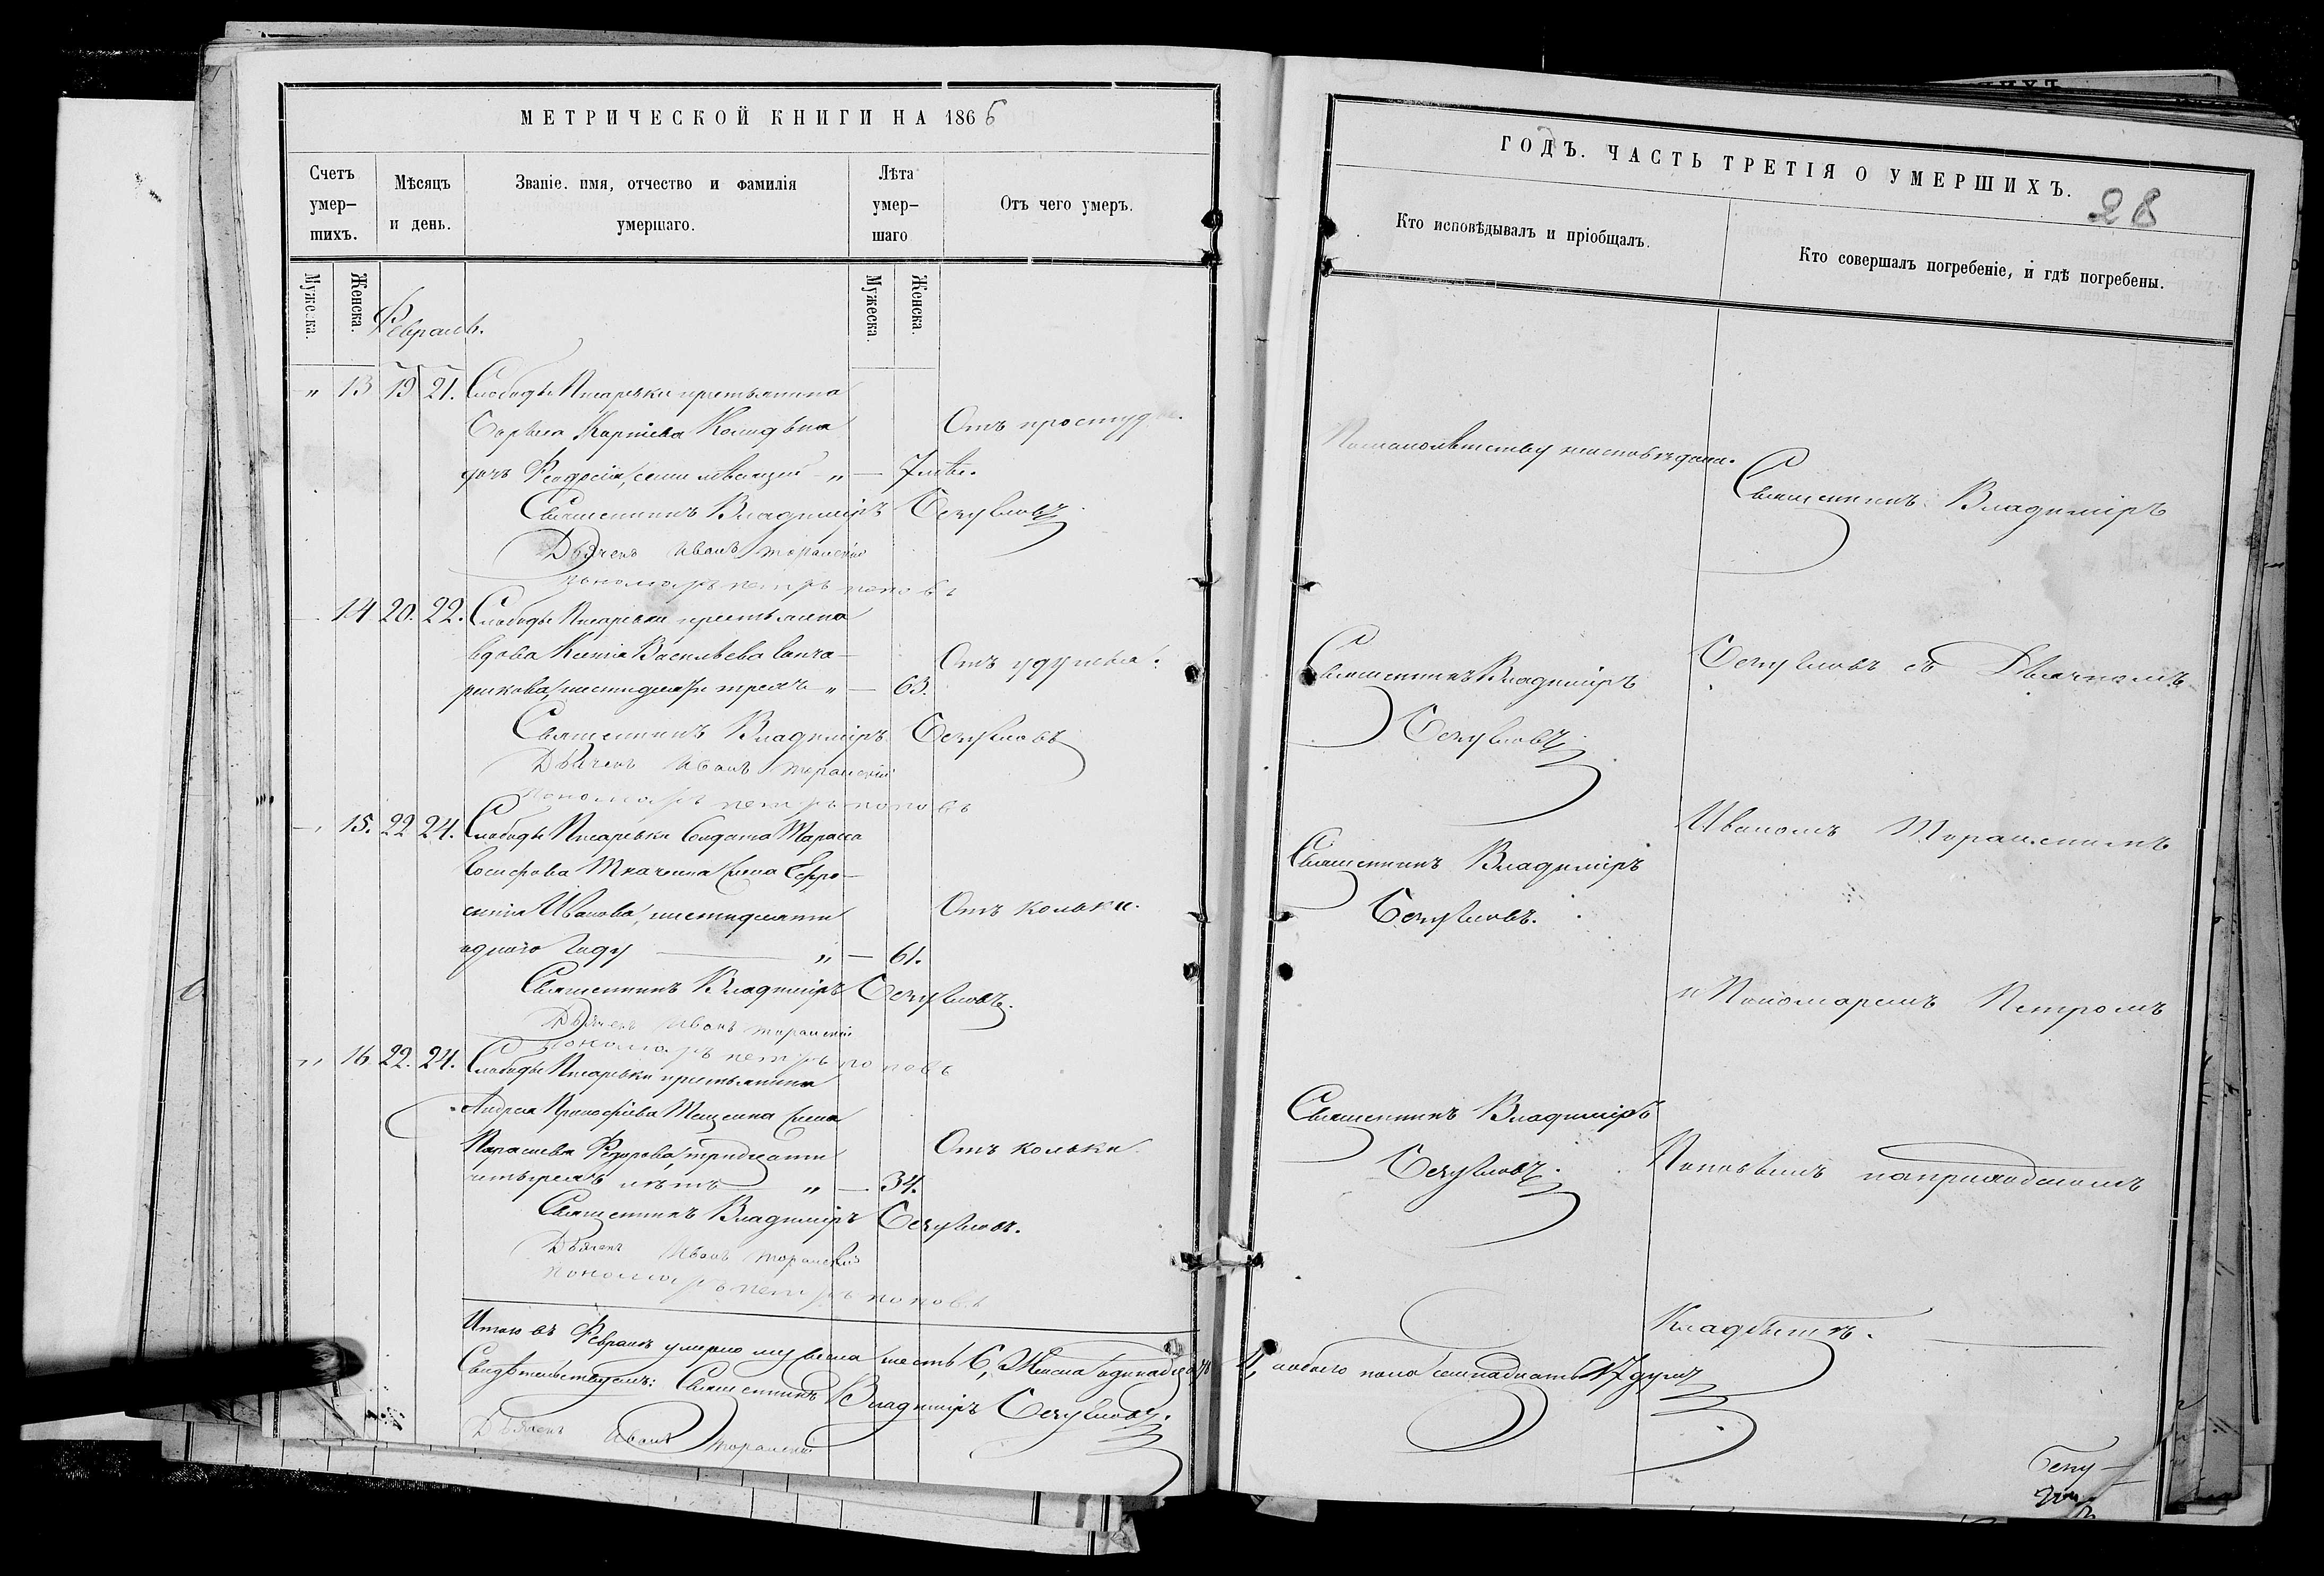 МЕТРИЧЕСКОЙ КНИГИ НА 1866
Счетъ умер-шихъ.
Мѣсяцъ и день.
Званіе. имя, отчество и фамилія умершаго.
Лѣта умер-шаго
Отъ чего умеръ.
Мужеска.
Женска.
Мужеска.
Женска.
Февраль.
" 13 19 21. Слободы Писаревки крестьянина
Карпіева
дочь Феодосія, семи лѣтъ " — 7 лѣт.
Отъ простуды.
Священникъ Владиміръ
Дьячекъ Иванъ
Пономарь Петръ Поповъ
14 20. 22. Слободы Писаревки крестьянка
вдова Ксенія Васильева Ганча-
рикова, шестидесяти трехъ " — 63.
Отъ удушья.
Священникъ Владиміръ
Дьячекъ Иванъ
Пономарь Петръ Поповъ
15. 22 24. Слободы Писаревки Солдата Тараса
Іосифова Ткаченка жена Ефро-
синія Иванова, шестидесяти
одного году " — 61.
Отъ кольки.
Священникъ Владиміръ
Дьячекъ Иванъ
Пономарь Петръ Поповъ
" 16 22. 24. Слободы Писаревки крестьянина
Андрея Прокофіева жена
Параскева Федорова, тридцати
четырехъ лѣтъ " — 34.
Отъ кольки.
Священникъ Владиміръ
Дьячекъ Иванъ
Пономарь Петръ Поповъ
Итого въ Февралѣ умерло мужеска шесть 6, Женска одинадцать 11, обоего пола семнадцать 17 душъ
Свидѣтельствуемъ: Священникъ Владиміръ
Дьячекъ Иванъ
ГОДЪ. ЧАСТЬ ТРЕТІЯ О УМЕРШИХЪ.
28
Кто исповѣдывалъ и пріобщалъ.
Кто совершалъ погребеніе, и гдѣ погребены.
По малолѣтству не исповѣдана.
Священникъ Владиміръ
Священникъ Владиміръ
Священникъ Владиміръ
Священникъ Владиміръ
съ Дьячкомъ
Иваномъ
и Пономаремъ Петромъ
Поповымъ на приходскомъ
Кладбищѣ.